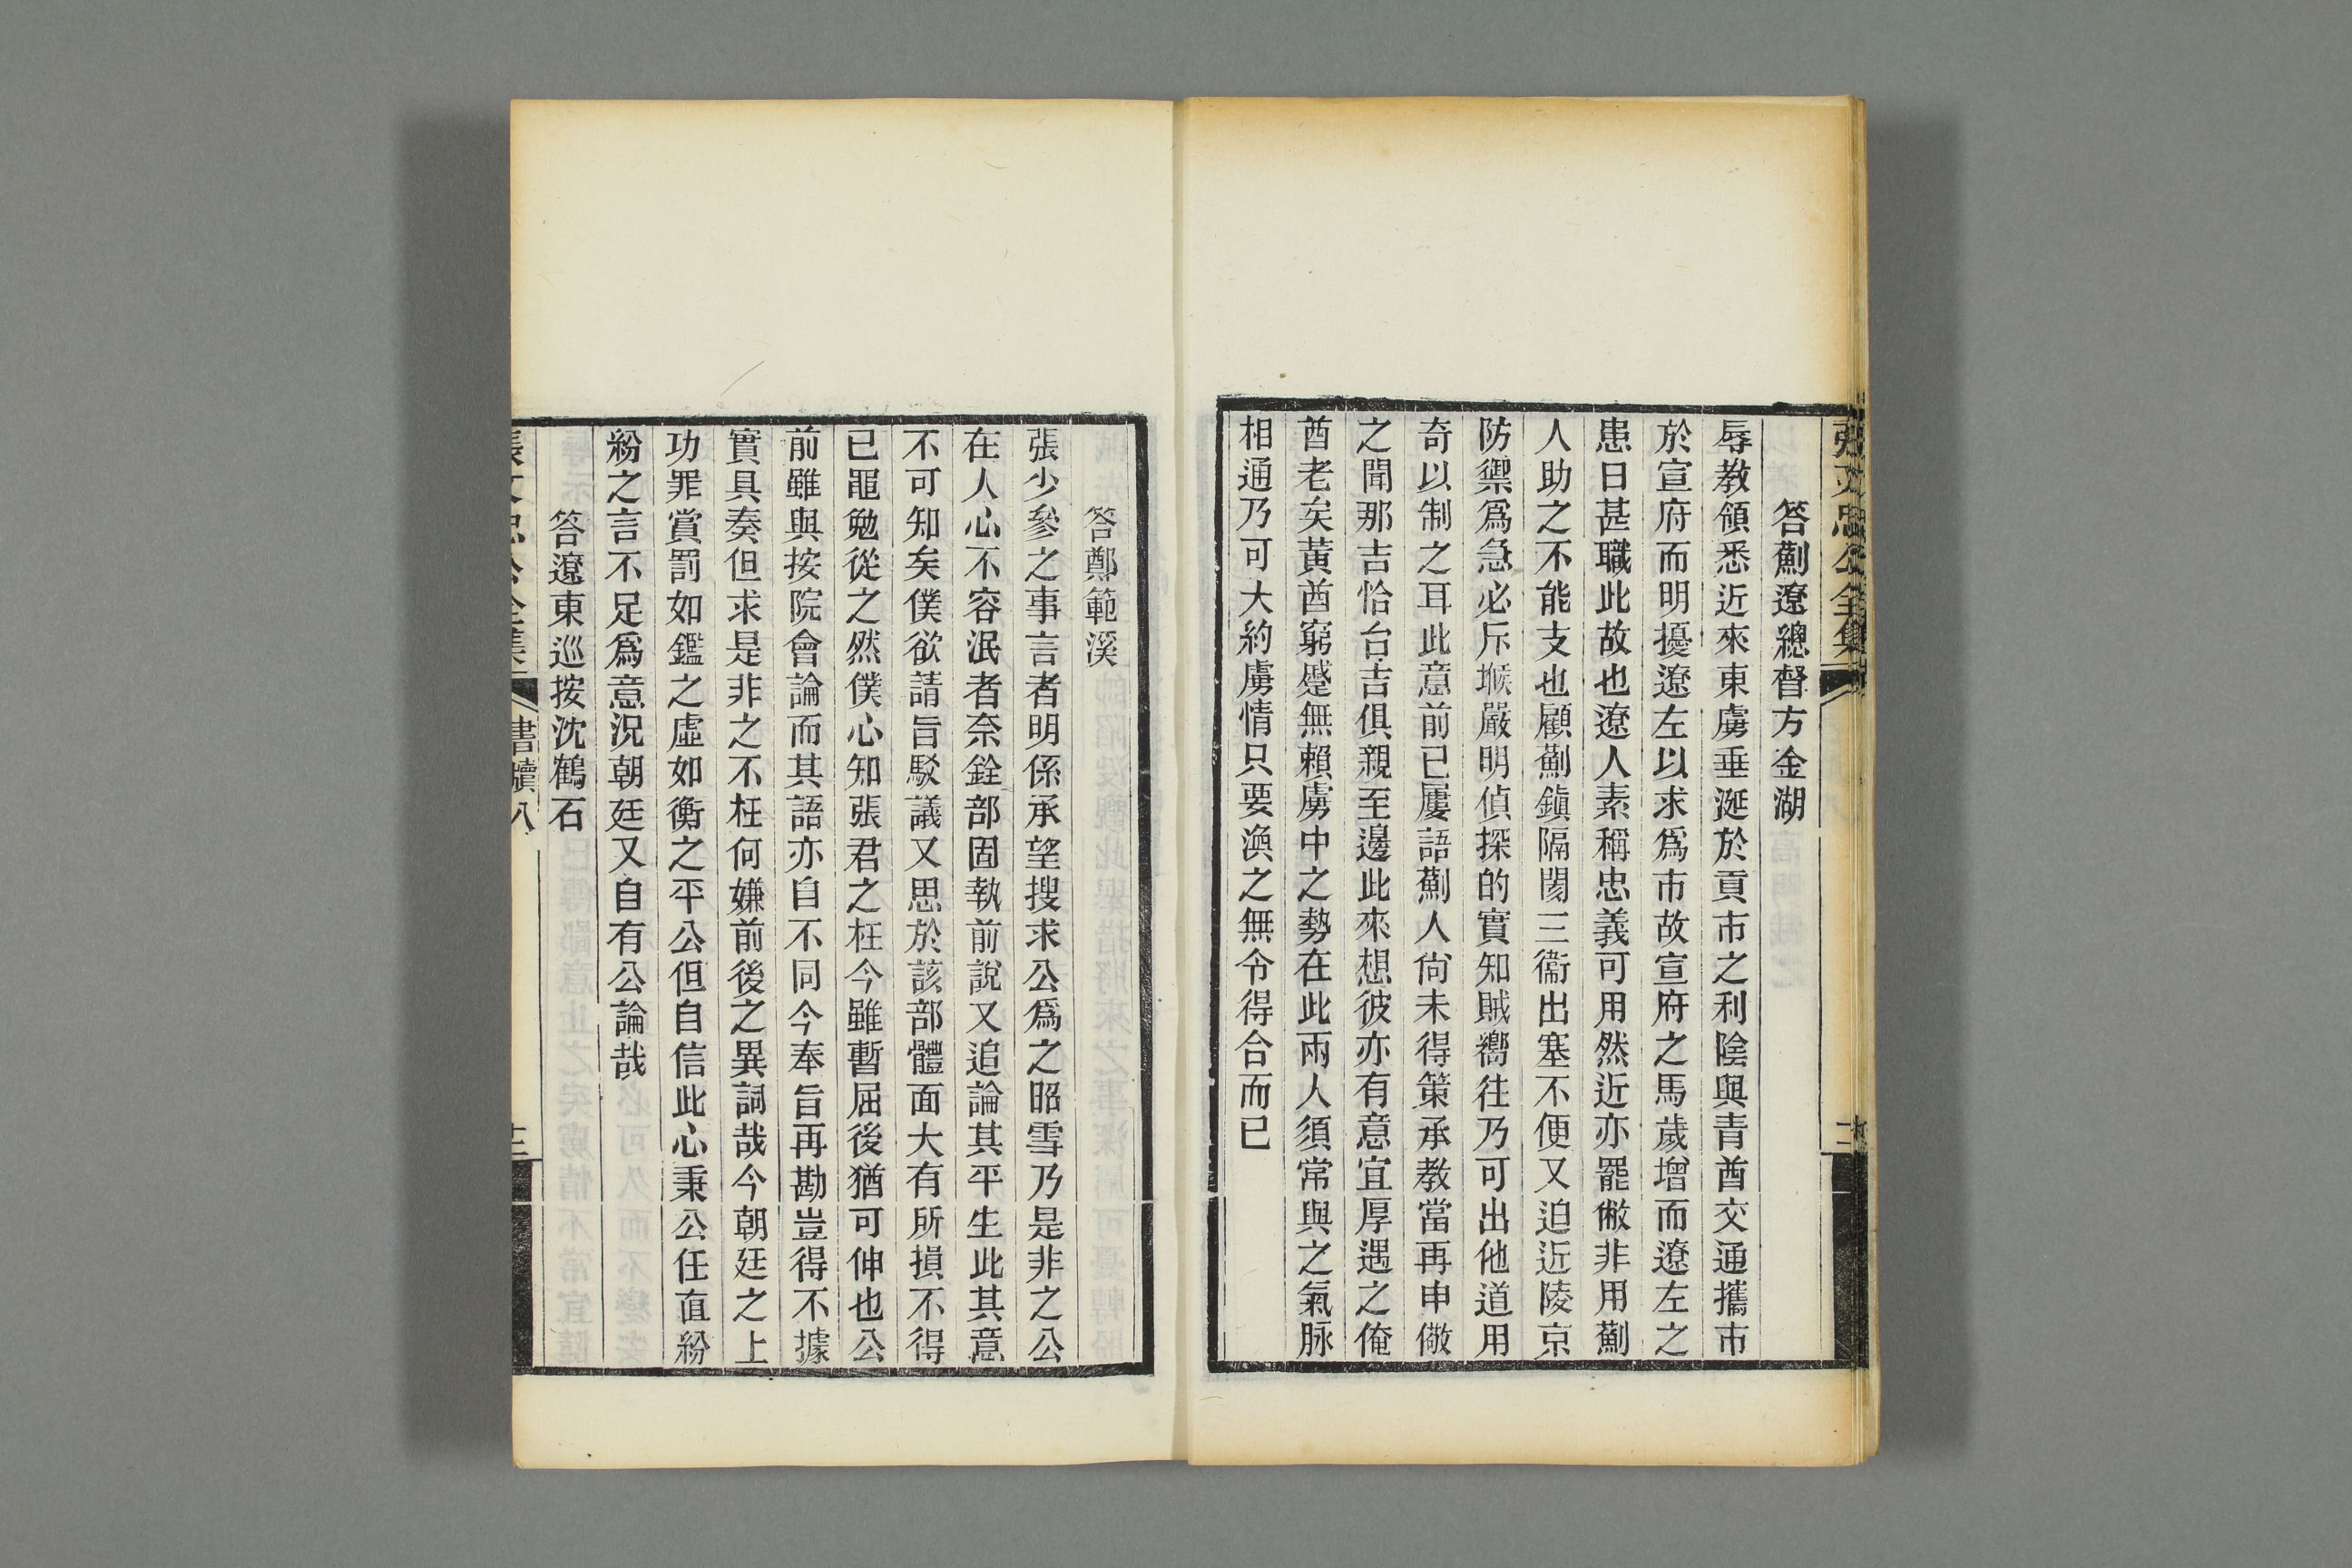 答薊遼總督方金湖
辱教領悉近來東虜垂涎於貢市之利陰與青酋交通攜市
於宣府而明擾遼左以求爲市故宣府之馬歲增而遼左之
患日甚職此故也遼人素稱忠義可用然近亦罷敝非用薊
人助之不能支也顧薊鎭隔閡三衞出塞不便又迫近陵京
防禦爲急必斥堠嚴明偵探的實知賊嚮往乃可出他道用
奇以制之耳此意前已屢語薊人尙未得策承教當再申儆
之聞那吉恰台吉俱親至邊此來想彼亦有意宜厚遇之俺
酋老矣黃酋窮蹙無賴虜中之勢在此兩人須常與之氣脉
相通乃可大約虜情只要渙之無令得合而已
答鄭範溪
張少參之事言者明係承望搜求公爲之昭雪乃是非之公
在人心不容泯者奈銓部固執前說又追論其平生此其意
不可知矣僕欲請旨駁議又思於該部體面大有所損不得
已黽勉從之然僕心知張君之枉今雖暫屈後猶可伸也公
前雖與按院會論而其語亦自不同今奉旨再勘豈得不據
實具奏但求是非之不枉何嫌前後之異詞哉今朝廷之上
功罪賞罰如鑑之虛如衡之平公但自信此心秉公任直紛
紛之言不足爲意況朝廷又自有公論哉
答遼東巡按沈鶴石
張文忠公全集 書牘八